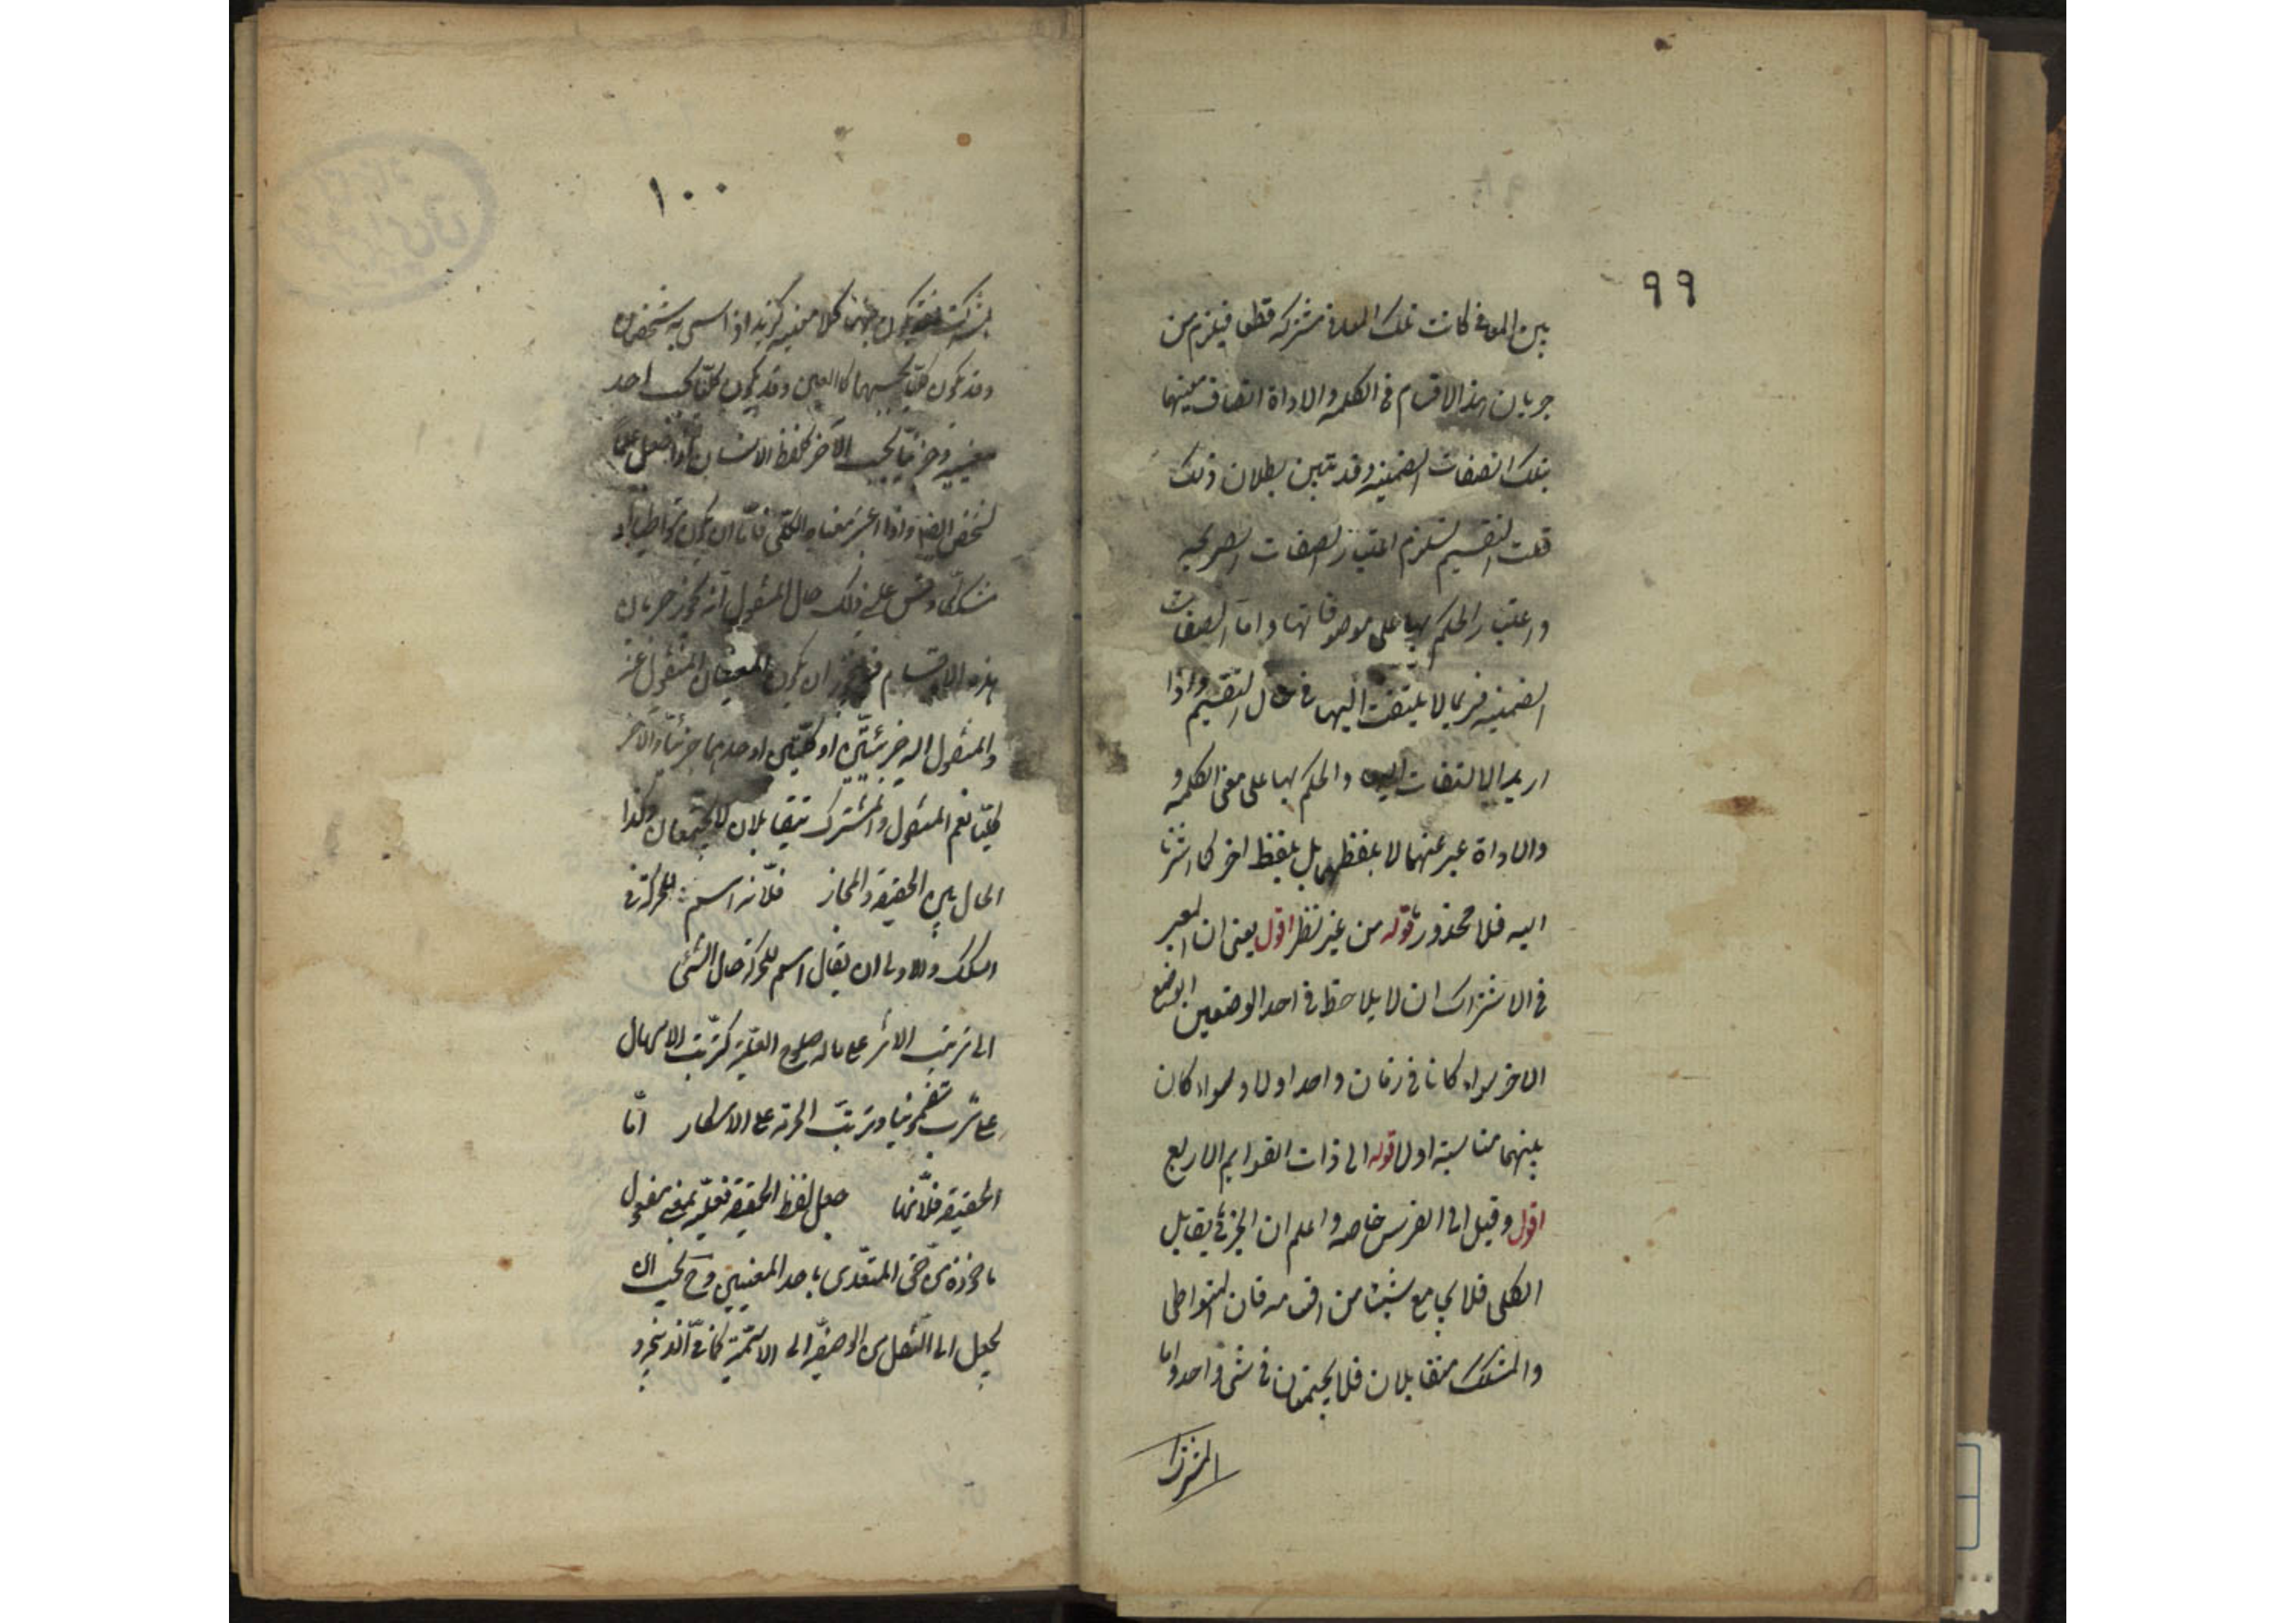 ٩٩
بين المعنى كانت تلك المعانى مشتركة قطعا فيلزم من
جريان هذه الاقسام فى الكلمة والاداة اتصاف معنيهما
بتلك الصفات الضمنية وقد تبين بطلان ذلك
قلت التقسيم يستلزم اعتبار الصفات الصريحة
واعتبار الحكم بها على موصوفاتها واما الصفات
الضمنية فربما لا يلتفت اليها فى حال التقسيم واذا
اريد الالتفات اليها والحكم بها على معنى الكلمة و
والاداة عبر عنهما لا بلفظهما بل بلفظ اخر كما اشرنا
اليه فلا محذور قوله من غير نظر اقول يعنى ان المعتبر
فى الاشتراك ان لا يلاحظ فى احد الوضعين الوضع
الاخر سواء كانا فى زمان واحد اولا وسواء كان
بينهما مناسبة اولا قوله الى ذات القوايم الاربع
اقول وقيل الى الفرس خاصه واعلم ان الجزئى يقابل
الكلى فلا يجامع شيئا من اقسامه فان المتواطى
والمشكك متقابلان فلا يجتمعان فى شئ واحد واما
المشترك
١٠٠
المشترك فقد يكون جزئيا بكلا معنييه كزيد اذا سمى به شخصان
وقد يكون كليا بحسبهما كالعين وقد يكون كليا بحسب احد
معنييه وجزئيا بحسب الآخر كلفظ الانسان اذا جعل علما
لشخص ايضا واذا اعتبر معناه الكلى فاما ان يكون متواطيا او
مشككا وقس على ذلك حال المنقول فانه يجوز جريان
هذه الاقسام فيه فيجوز ان يكون المعنيان المنقول عنه
والمنقول اليه جزئيين او كليين او احدهما جزئيا والآخر
كليا نعم المنقول والمشترك متقابلان لا يجتمعان وكذا
الحال بين الحقيقة والمجاز فلانه اسم للحركة فى
السكك والاولى ان يقال اسم للحركة حال الشئ
الى ترتب الاثر على ماله صلوح العلية كترتب الاسهال
على شرب سقمونيا وترتب الحرمة على الاسكار اما
الحقيقة فلانها جعل لفظ الحقيقة فعيلة بمعنى مفعول
ماخوذة من حق المتعدى باحد المعنيين وح يجب ان
يجعل التاء للنقل من الوصفية الى الاسمية كما فى